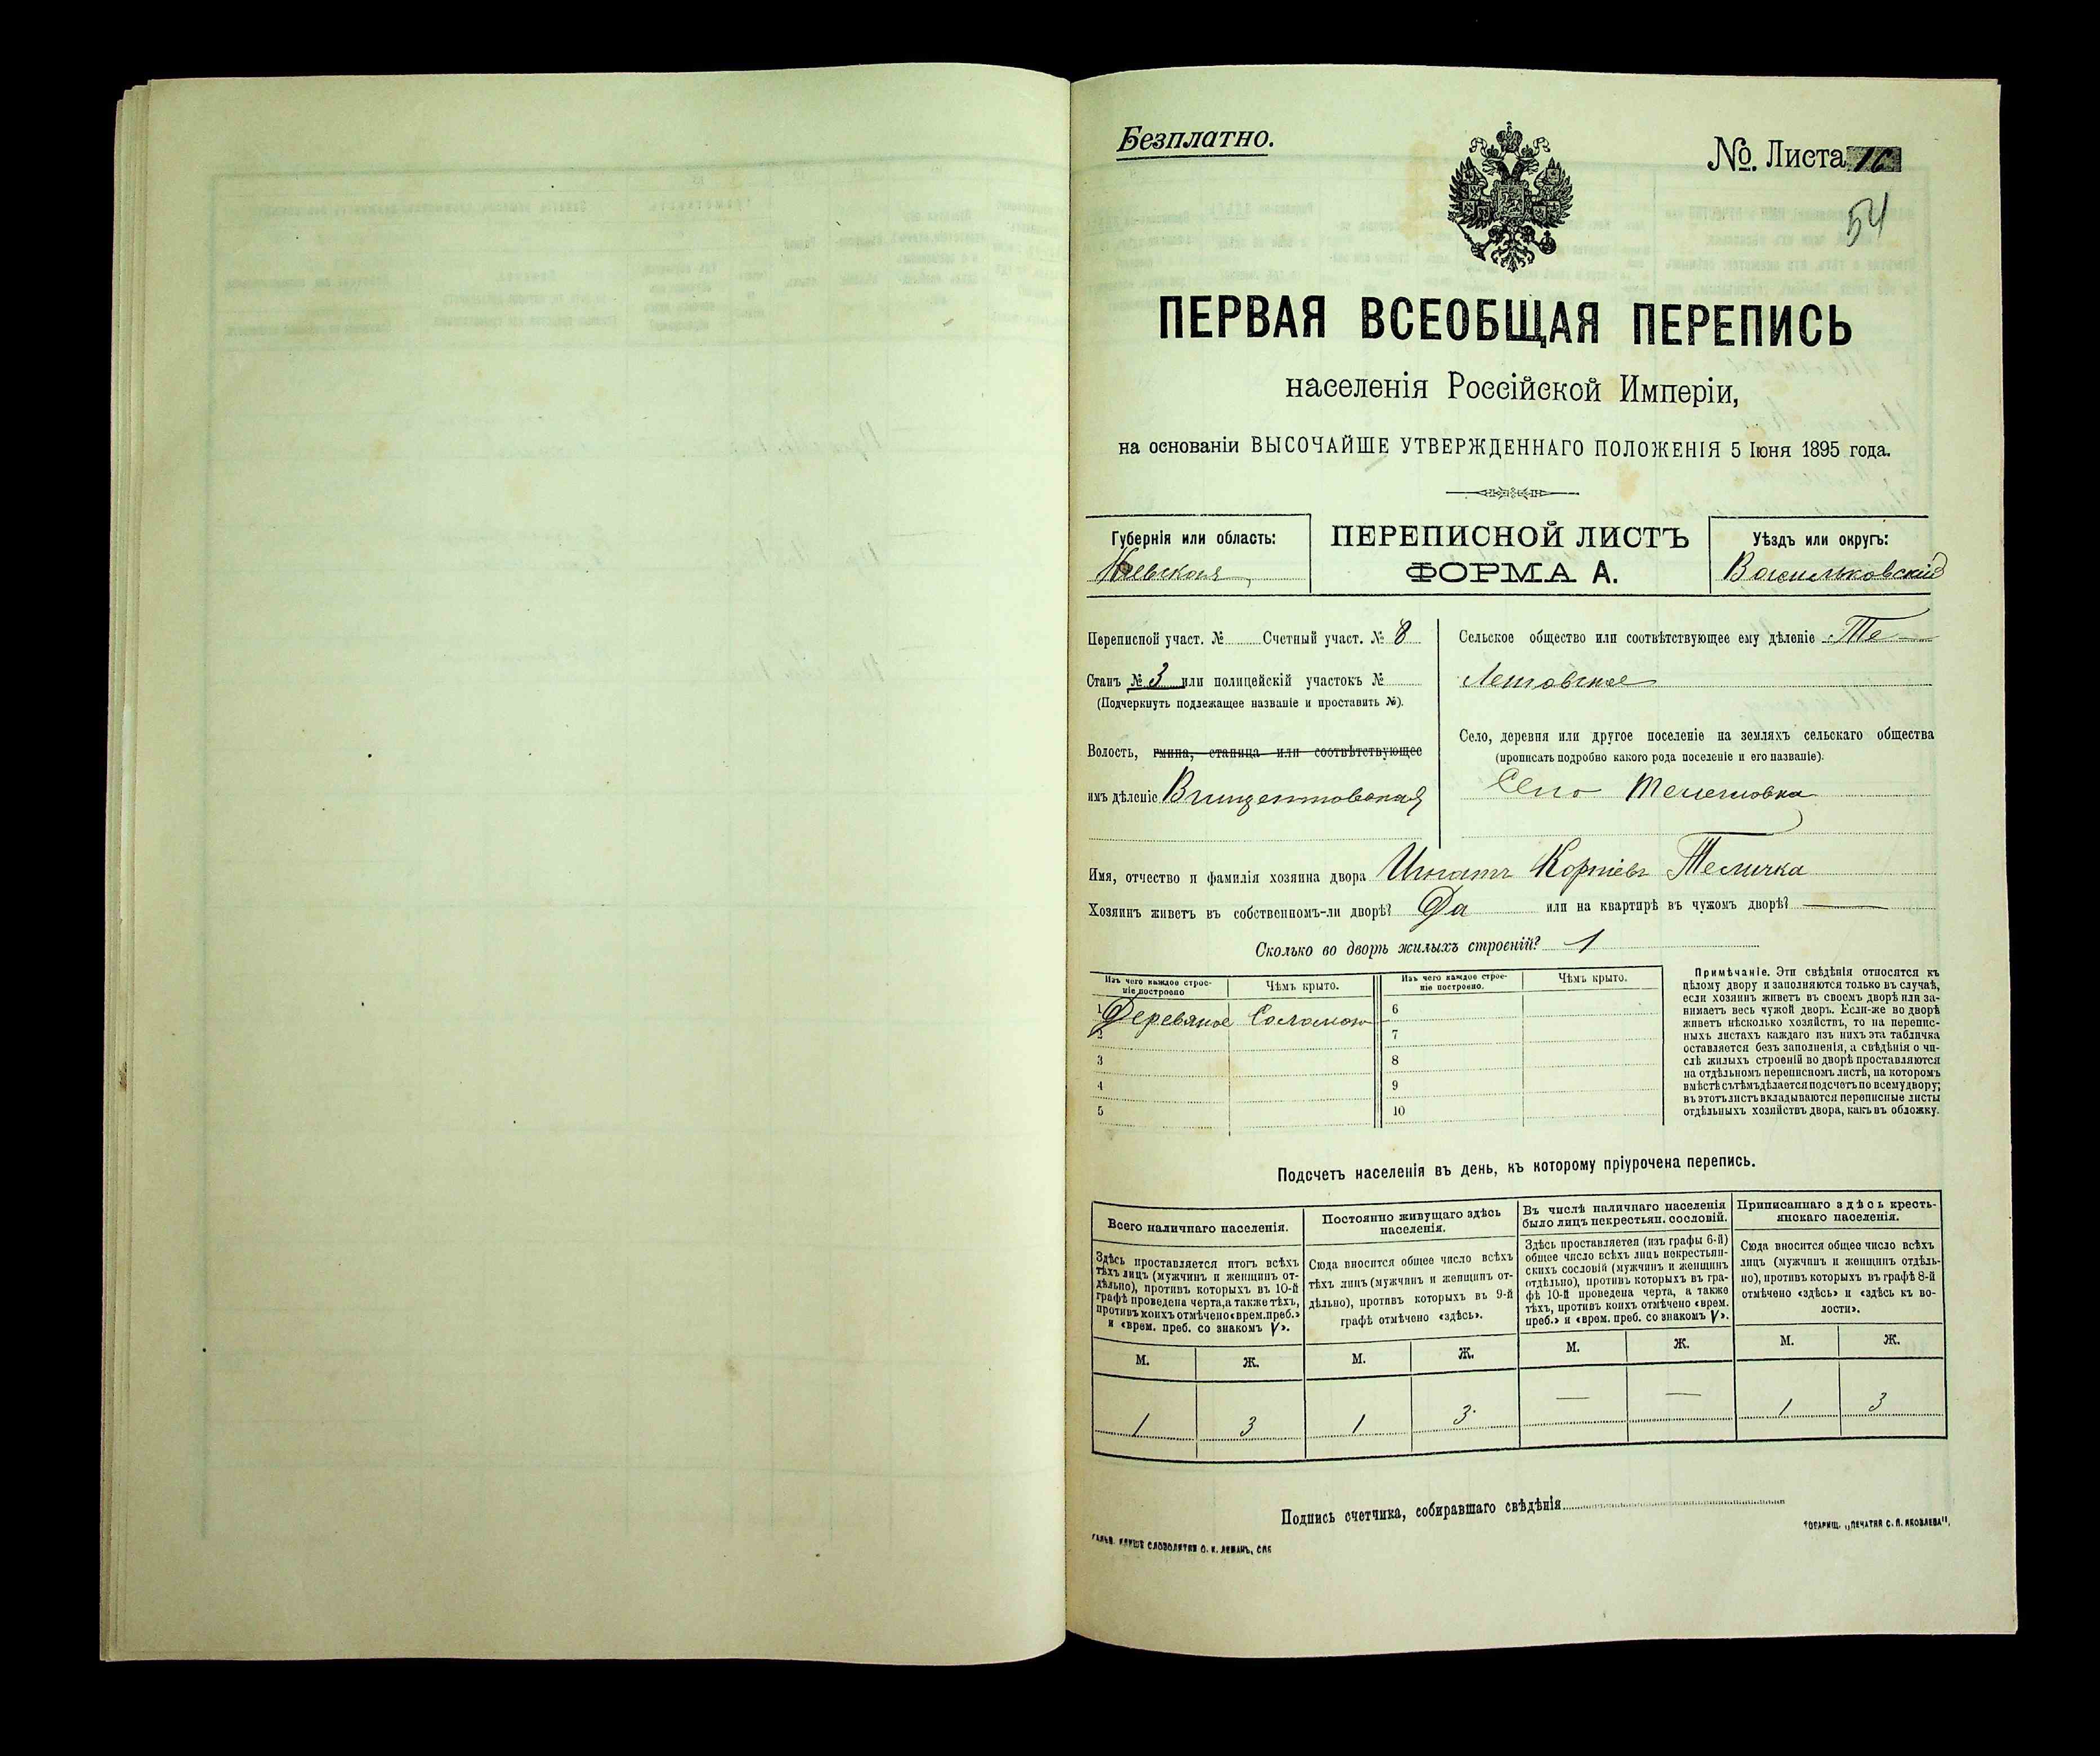 Безплатно.
№ Листа 16
54
ПЕРВАЯ ВСЕОБЩАЯ ПЕРЕПИСЬ
населенія Россійской Имперіи,
на основаніи ВЫСОЧАЙШЕ УТВЕРЖДЕННАГО ПОЛОЖЕНІЯ 5 Іюня 1895 года.
Губернія или область:
Кіевская
ПЕРЕПИСНОЙ ЛИСТЪ
ФОРМА А.
Уѣздъ или округъ:
Васильковскій
Переписной участ. № Счетный участ. № 8
Станъ № 3 или полицейскій участокъ №
(Подчеркнуть подлежащее названіе и проставить №).
Волость, гмина, станица или соотвѣтствующее
имъ дѣленіе Винцентовская
Сельское общество или соотвѣтствующее ему дѣленіе Те-
лешовское
Село, деревня или другое поселеніе на земляхъ сельскаго общества
(прописать подробно какого рода поселеніе и его названіе).
Село Телешовка
Имя, отчество и фамилія хозяина двора Игнатъ Корніевъ Теличка
Хозяинъ живетъ въ собственномъ-ли дворѣ? Да или на квартирѣ въ чужомъ дворѣ? —
Сколько во дворѣ жилыхъ строеній? 1
Изъ чего каждое строе-
ніе построено
Чѣмъ крыто.
Изъ чего каждое строе-
ніе построено.
Чѣмъ крыто.
1 Деревяное Соломою 6
2 7
3 8
4 9
5 10
Примѣчаніе. Эти свѣдѣнія относятся къ
цѣлому двору и заполняются только въ случаѣ,
если хозяинъ живетъ въ своемъ дворѣ или за-
нимаетъ весь чужой дворъ. Если-же во дворѣ
живетъ нѣсколько хозяйствъ, то на перепис-
ныхъ листахъ каждаго изъ нихъ эта табличка
оставляется безъ заполненія, а свѣдѣнія о чи-
слѣ жилыхъ строеній во дворѣ проставляются
на отдѣльномъ переписномъ листѣ, на которомъ
вмѣстѣ съ тѣмъ дѣлается подсчетъ по всему двору;
въ этотъ листъ вкладываются переписные листы
отдѣльныхъ хозяйствъ двора, какъ въ обложку.
Подсчетъ населенія въ день, къ которому пріурочена перепись.
Всего наличнаго населенія.
Постоянно живущаго здѣсь
населенія.
Въ числѣ наличнаго населенія
было лицъ некрестьян. сословій.
Приписаннаго здѣсь кресть-
янскаго населенія.
Здѣсь проставляется итогъ всѣхъ
тѣхъ лицъ (мужчинъ и женщинъ от-
дѣльно), противъ которыхъ въ 10-й
графѣ проведена черта, а также тѣхъ,
противъ коихъ отмѣчено «врем. преб.»
и «врем. преб. со знакомъ V».
Сюда вносится общее число всѣхъ
тѣхъ лицъ (мужчинъ и женщинъ от-
дѣльно), противъ которыхъ въ 9-й
графѣ отмѣчено «здѣсь».
Здѣсь проставляется (изъ графы 6-й)
общее число всѣхъ лицъ некрестьян-
скихъ сословій (мужчинъ и женщинъ
отдѣльно), противъ которыхъ въ гра-
фѣ 10-й проведена черта, а также
тѣхъ, противъ коихъ отмѣчено «врем.
преб.» и «врем. преб. со знакомъ V».
Сюда вносится общее число всѣхъ
лицъ (мужчинъ и женщинъ отдѣль-
но), противъ которыхъ въ графѣ 8-й
отмѣчено «здѣсь» и «здѣсь къ во-
лости».
М. Ж. М. Ж. М. Ж. М. Ж.
1 3 1 3 — — 1 3
Подпись счетчика, собиравшаго свѣдѣнія
СЛОВОЛИТНЯ О. И. ЛЕМАНЪ, СПБ
ТОВАРИЩ. „ПЕЧАТНЯ С. П. ЯКОВЛЕВА“.